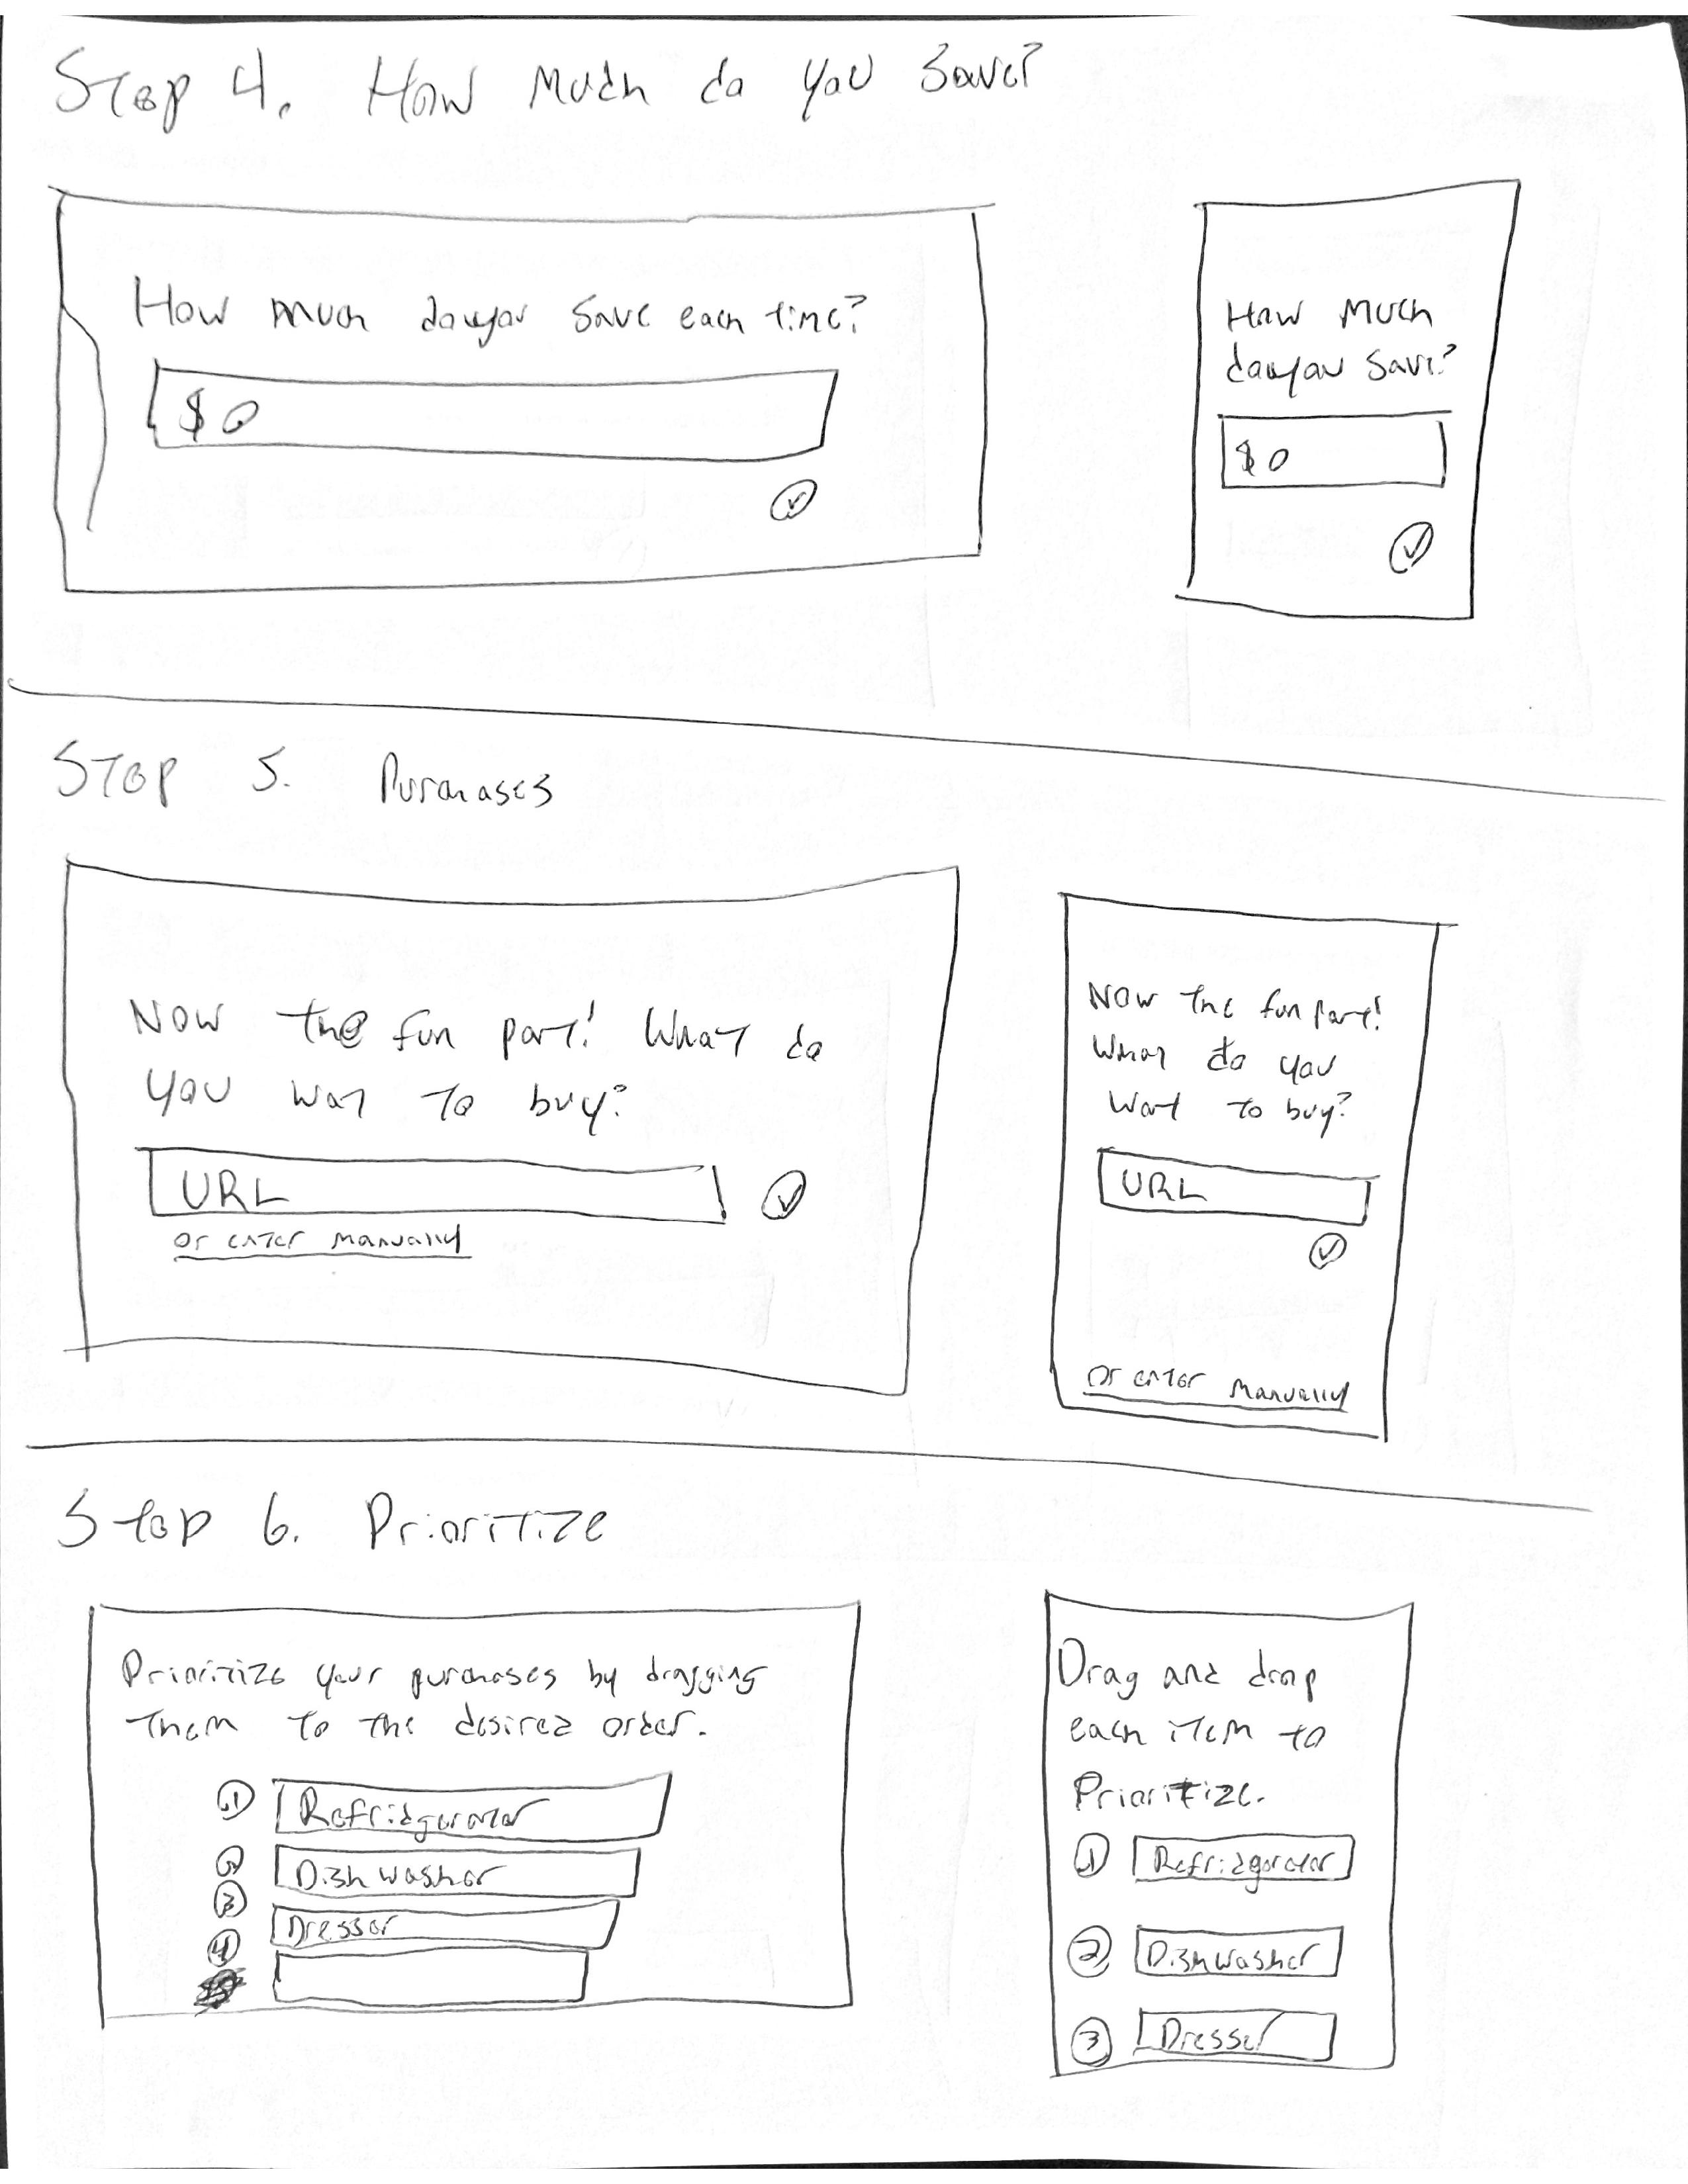 Step 4. How Much do you Save?
How much do you save each time?
$0
How Much
do you Save?
$0
Step 5. Purchases
Now the fun part! What do
you wat to buy?
URL
or enter manually
Now the fun part!
What do you
Wat to buy?
URL
or enter manually
Step 6. Prioritize
Prioritize your purchases by dragging
them to the desired order.
1 Refridgerator
2 Dishwasher
3 Dresser
4
Drag and drop
each item to
Prioritize.
1 Refridgerator
2 Dishwasher
3 Dresser